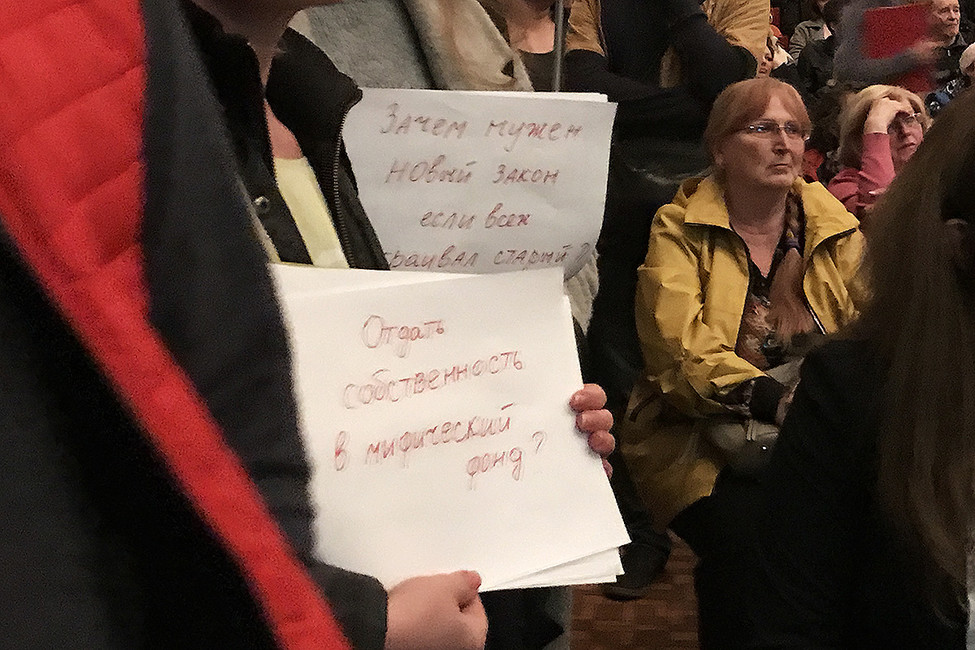 Зачем нужен
новый закон
если всех
траивал старый?
Отдать
собственность
в мифический
фонд?